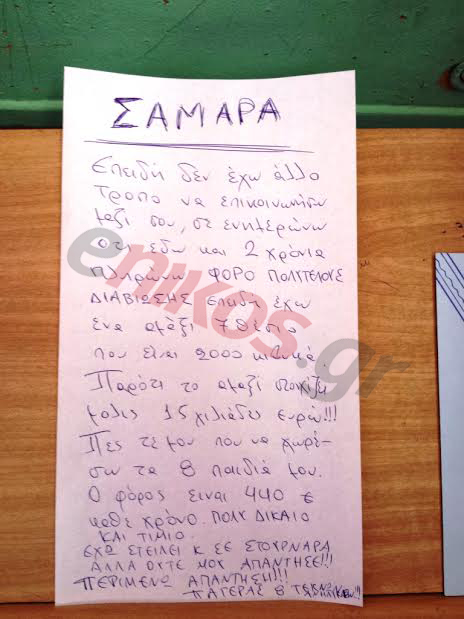 ΣΑΜΑΡΑ
Επειδή δεν έχω άλλο
τροπο να επικοινωνήσω
μαζί σου, σε ενημερώνω
οτι εδω και 2 χρόνια
πληρώνω ΦΟΡΟ ΠΟΛΥΤΕΛΟΥΣ
ΔΙΑΒΙΩΣΗΣ επειδή έχω
ένα αμάξι 7θέσιο
που είναι 2000 κυβικά.
Παρότι το αμαξί στοιχίζει
μολις 15 χιλιάδες ευρώ!!!
Πες τε μου που να χωρέ-
σω τα 8 παιδιά μου.
Ο φόρος ειναι 440 €
καθε χρόνο. ΠΟΛΥ ΔΙΚΑΙΟ
ΚΑΙ ΤΙΜΙΟ.
ΕΧΩ ΣΤΕΙΛΕΙ Κ ΣΕ ΣΤΟΥΡΝΑΡΑ
ΑΛΛΑ ΟΥΤΕ ΜΟΥ ΑΠΑΝΤΗΣΕ!!!
ΠΕΡΙΜΕΝΩ ΑΠΑΝΤΗΣΗ!!!
ΠΑΤΕΡΑΣ 8 ΤΕΚΝΩΝ
enikos.gr